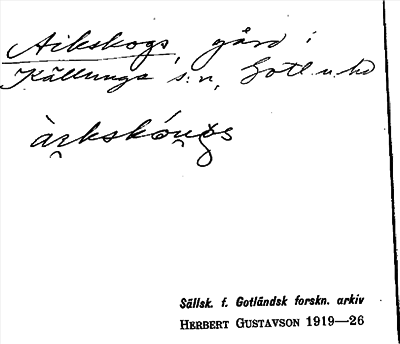 Aikskogs, gård i
Källunga s:n, Gotl. n. hd
Sällsk. f. Gotländsk forskn. arkiv
HERBERT GUSTAVSON 1919—26